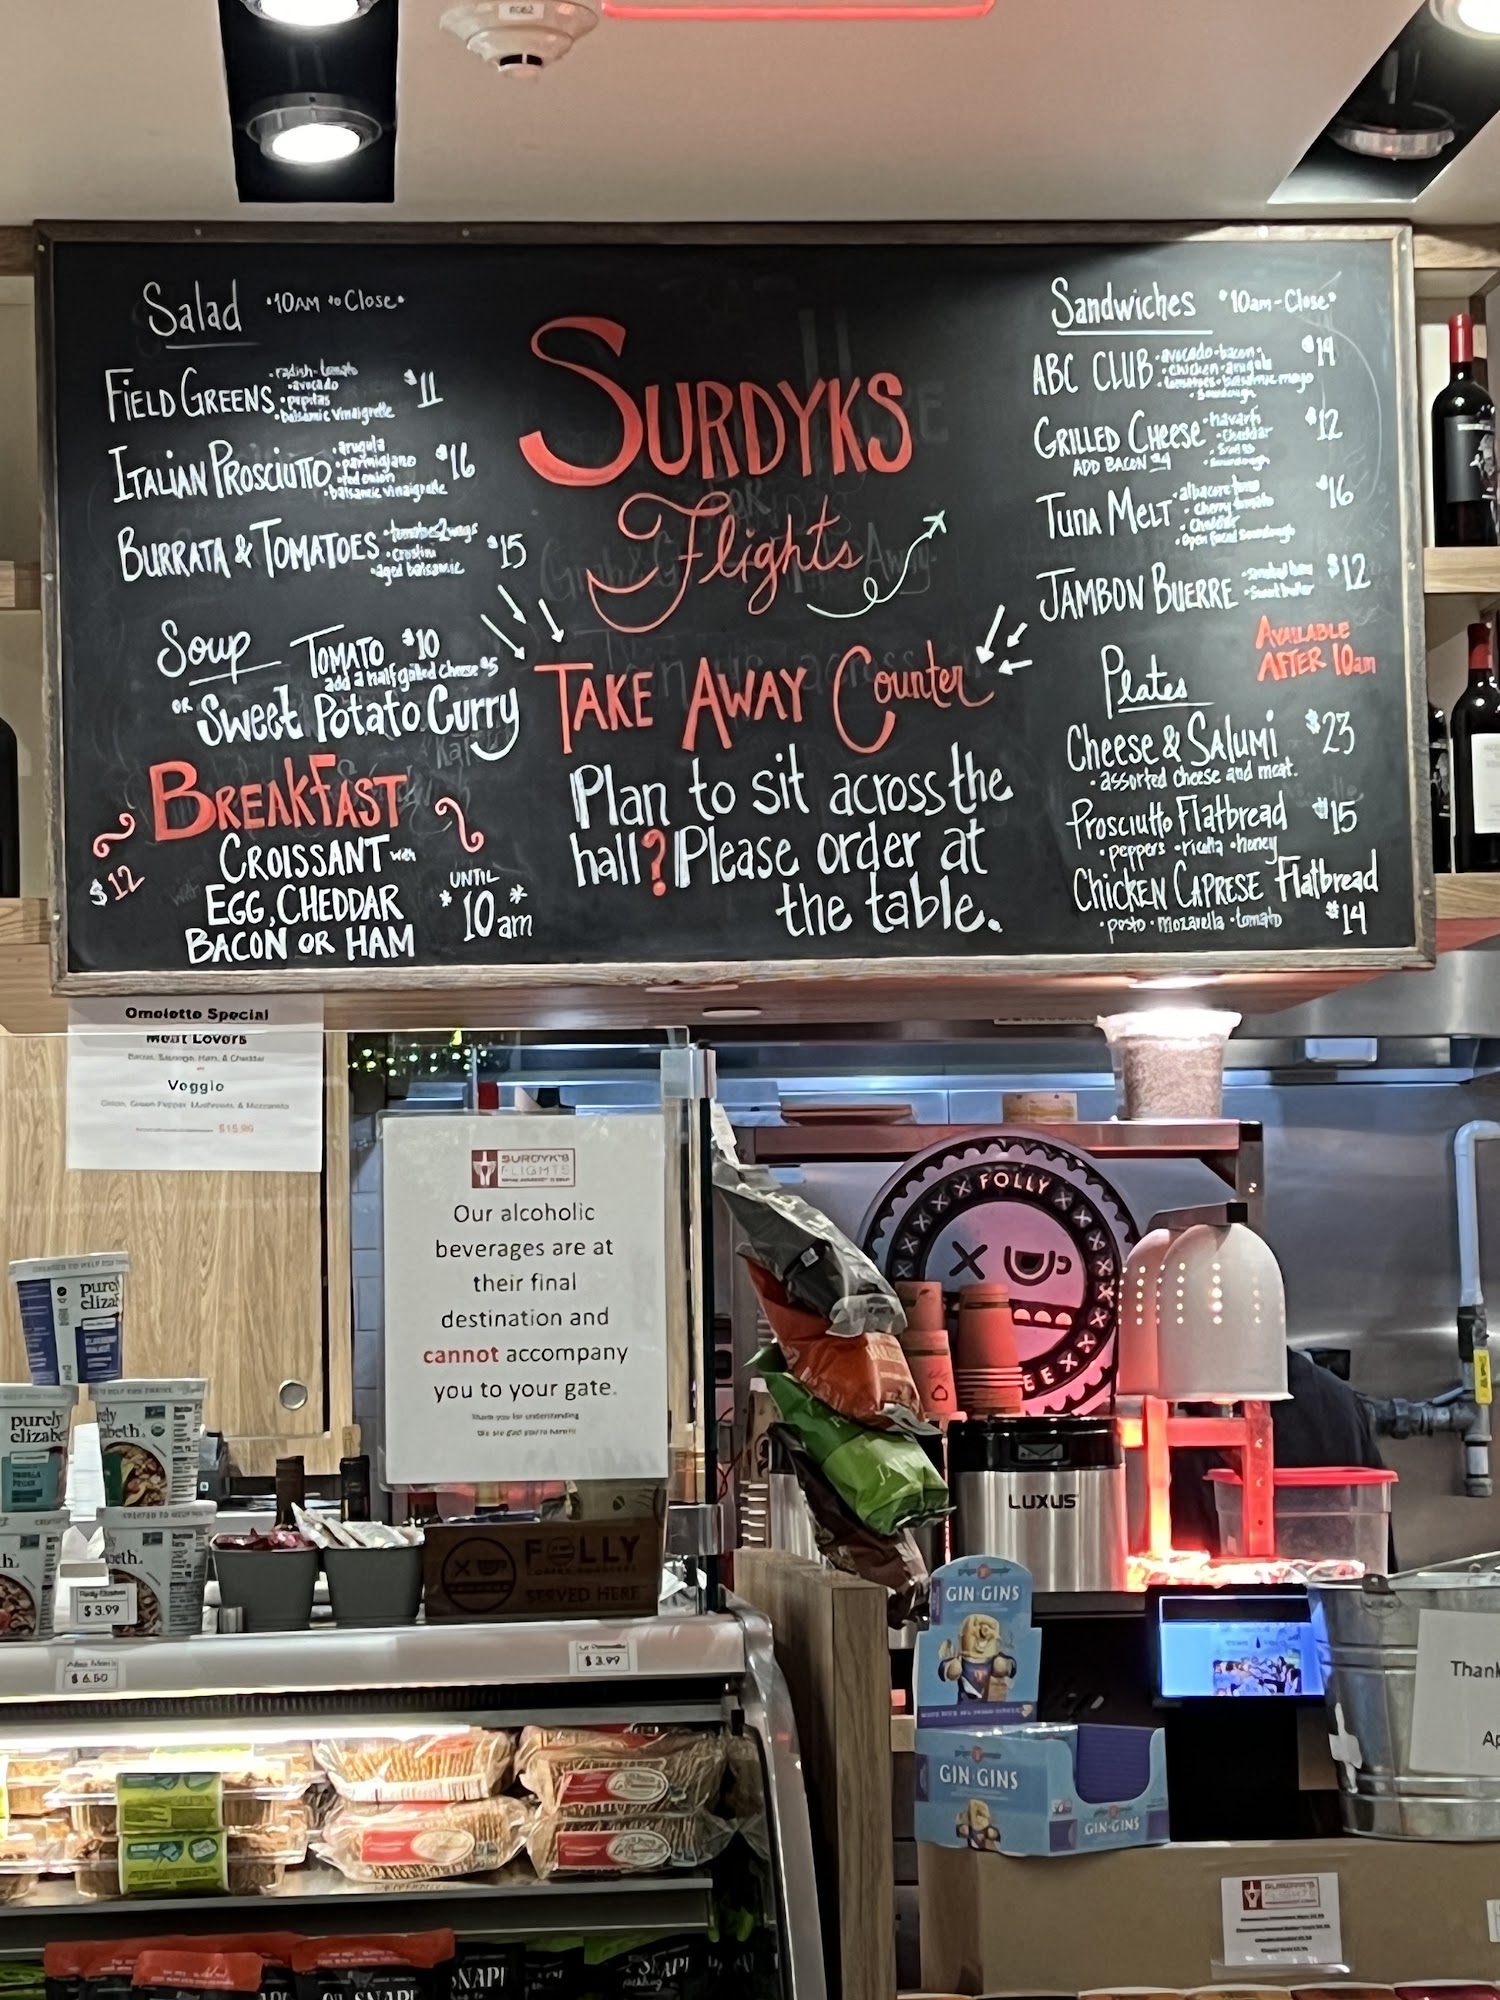 6062
Salad •10AM to Close•
FIELD GREENS •radish•tomato $11
•avocado
•pepitas
•balsamic vinaigrette
ITALIAN PROSCIUTTO •arugula $16
•parmigiano
•red onion
•balsamic vinaigrette
BURRATA & TOMATOES •tomatoes 2 ways $15
•crostini
•aged balsamic
Soup TOMATO $10
add a half grilled cheese $5
OR Sweet Potato Curry
BREAKFAST
$12 CROISSANT with
EGG, CHEDDAR
BACON OR HAM
UNTIL
*10am*
SURDYKS
Flights
TAKE AWAY Counter
Plan to sit across the
hall? Please order at
the table.
Sandwiches •10am-Close•
ABC CLUB •avocado•bacon• $14
•chicken•arugula
•tomatoes•balsamic mayo
•Sourdough
GRILLED CHEESE •havarti $12
•Cheddar
•Swiss
•Sourdough
ADD BACON $4
TUNA MELT •albacore tuna $16
•cherry tomato
•Cheddar
•Open faced Sourdough
JAMBON BUERRE •Smoked ham $12
•Sweet butter
AVAILABLE
AFTER 10am
Plates
Cheese & SALUMI $23
•assorted cheese and meat.
Prosciutto Flatbread $15
•peppers •ricotta •honey
CHICKEN CAPRESE Flatbread
•pesto •mozarella •tomato $14
Omelette Special
Meat Lovers
Bacon, Sausage, Ham, & Cheddar
or
Veggie
Onion, Green Pepper, Mushroom, & Mozzarella
$15.99
SURDYK'S
FLIGHTS
Our alcoholic
beverages are at
their final
destination and
cannot accompany
you to your gate.
Thank you for understanding
We are glad you're here!!!
FOLLY
LUXUS
purely
eliza
purely
elizabe
ely
abeth.
eth.
h.
$3.99
$6.50
$3.99
FOLLY
COFFEE ROASTERS
SERVED HERE
GIN·GINS
GIN·GINS
GIN·GINS
Thank
Ap
SURDYK'S
FLIGHTS
SNAP!
SNAP!